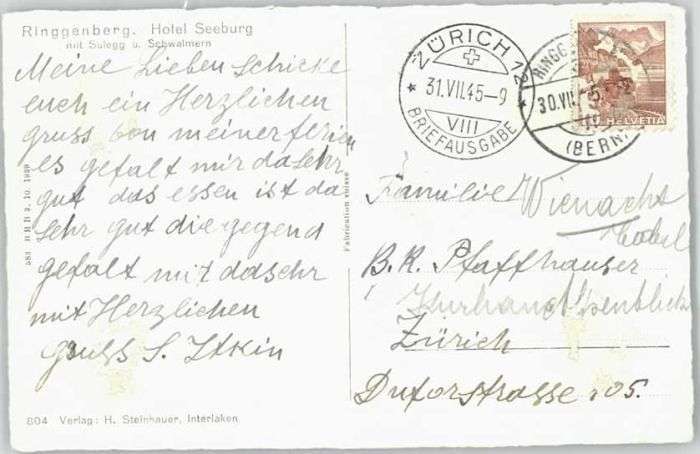 Ringgenberg. Hotel Seeburg
mit Sulegg u. Schwalmern
Meine Lieben Schicke
euch ein Herzlichen
gruss von meiner ferien
es gefalt mir da sehr
gut das essen ist da
sehr gut die gegend
gefalt mir da sehr
mit Herzlichen
gruss S. Itkin
804 Verlag: H. Steinhauer, Interlaken.
Fabrication suisse
ZÜRICH 12
31.VII.45-9
VIII
BRIEFAUSGABE
RINGG
30.VII.
(BERN)
HELVETIA
Familie Wienacht
Zobel
B.R. Pfaffhauser
Kurhaus Alpenblick
Zürich
Duforstrasse 105.